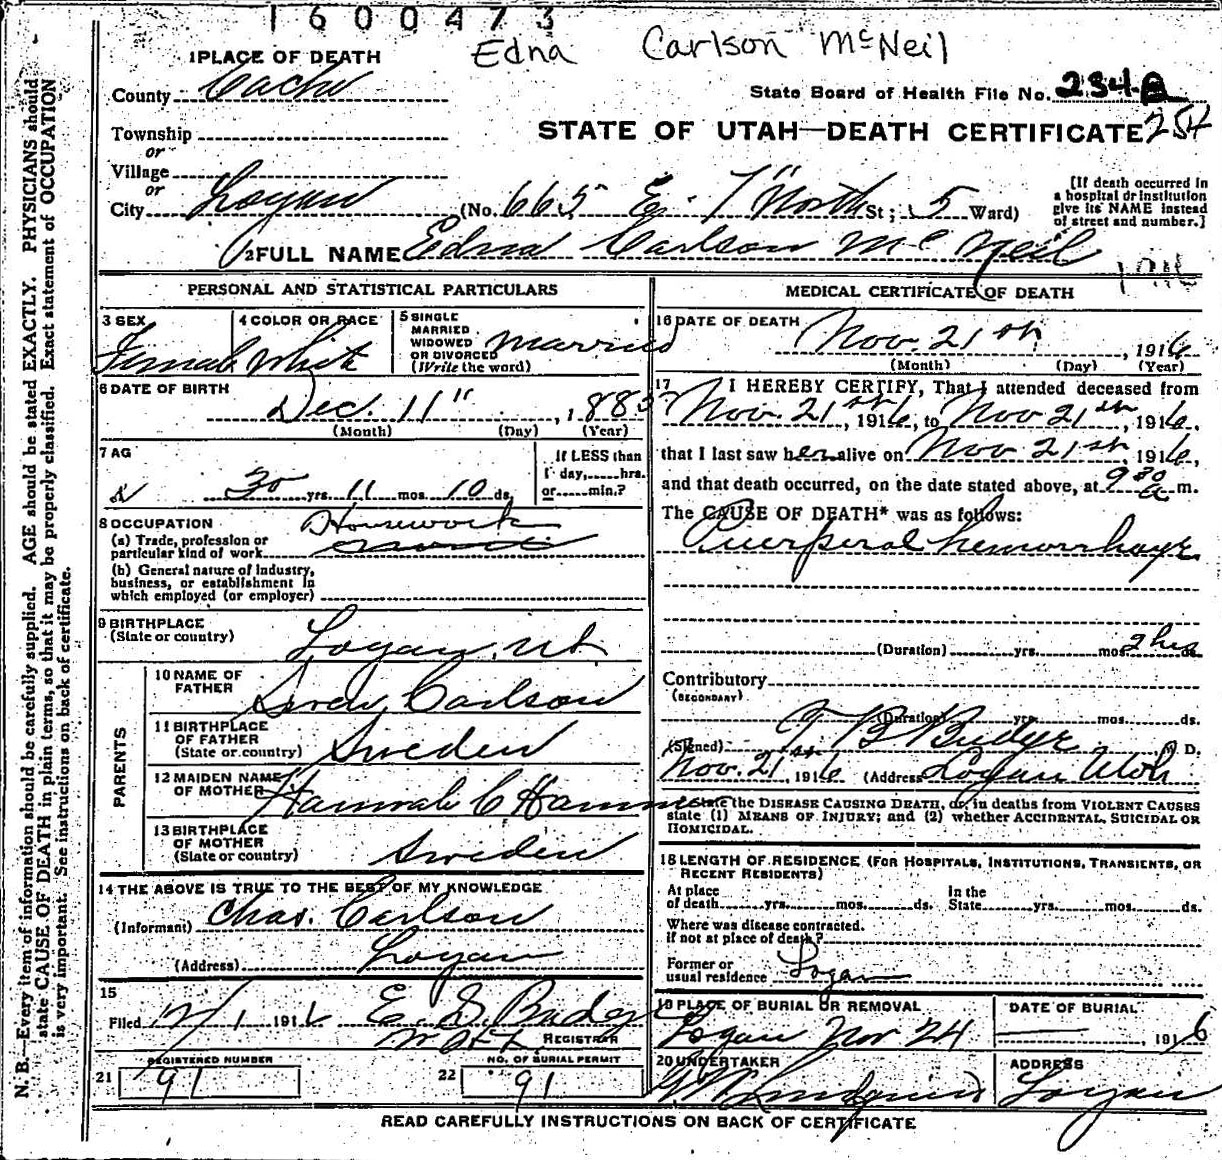 1600473
Edna Carlson McNeil
1 PLACE OF DEATH
County Cache
State Board of Health File No. 234 B
STATE OF UTAH—DEATH CERTIFICATE 254
Township
or
Village
or
City Logan (No. 665 E. 1" North St; 5 Ward)
[If death occurred in
a hospital or institution
give its NAME instead
of street and number.]
2 FULL NAME Edna Carlson McNeil
1916
PERSONAL AND STATISTICAL PARTICULARS
3 SEX
Female
4 COLOR OR RACE
White
5 SINGLE
MARRIED
WIDOWED
OR DIVORCED
(Write the word)
Married
6 DATE OF BIRTH
Dec. 11", 1885
(Month) (Day) (Year)
7 AG
30 yrs. 11 mos. 10 ds.
If LESS than
1 day,.....hrs.
or.....min.?
8 OCCUPATION
(a) Trade, profession or
particular kind of work
Housework
(b) General nature of industry,
business, or establishment in
which employed (or employer)
9 BIRTHPLACE
(State or country)
Logan, Ut.
PARENTS
10 NAME OF
FATHER
Carlson
11 BIRTHPLACE
OF FATHER
(State or country)
Sweden
12 MAIDEN NAME
OF MOTHER
Hannah C
13 BIRTHPLACE
OF MOTHER
(State or country)
Sweden
14 THE ABOVE IS TRUE TO THE BEST OF MY KNOWLEDGE
(Informant) Chas. Carlson
(Address) Logan
15
Filed 12/1 1916 E. S. Budge
REGISTRAR
REGISTERED NUMBER
21 91
NO. OF BURIAL PERMIT
22 91
MEDICAL CERTIFICATE OF DEATH
16 DATE OF DEATH
Nov. 21st, 1916
(Month) (Day) (Year)
17 I HEREBY CERTIFY, That I attended deceased from
Nov. 21st, 1916, to Nov 21st, 1916.
that I last saw her alive on Nov 21st, 1916,
and that death occurred, on the date stated above, at 9 30 a m.
The CAUSE OF DEATH* was as follows:
Puerperal hemorrhage
(Duration) yrs. mos. 2 hrs ds.
Contributory
(SECONDARY)
(Duration) yrs. mos. ds.
(Signed) T B Budge M. D.
Nov. 21st, 1916 (Address) Logan Utah
*State the DISEASE CAUSING DEATH, or, in deaths from VIOLENT CAUSES
state (1) MEANS OF INJURY; and (2) whether ACCIDENTAL, SUICIDAL OR
HOMICIDAL.
18 LENGTH OF RESIDENCE (FOR HOSPITALS, INSTITUTIONS, TRANSIENTS, OR
RECENT RESIDENTS)
At place
of death yrs. mos. ds.
In the
State yrs. mos. ds.
Where was disease contracted.
if not at place of death?
Former or
usual residence Logan
19 PLACE OF BURIAL OR REMOVAL
Logan Nov 24
DATE OF BURIAL
, 1916
20 UNDERTAKER
Lundquist
ADDRESS
Logan
READ CAREFULLY INSTRUCTIONS ON BACK OF CERTIFICATE
N. B.—Every item of information should be carefully supplied. AGE should be stated EXACTLY. PHYSICIANS should
state CAUSE OF DEATH in plain terms, so that it may be properly classified. Exact statement of OCCUPATION
is very important. See instructions on back of certificate.